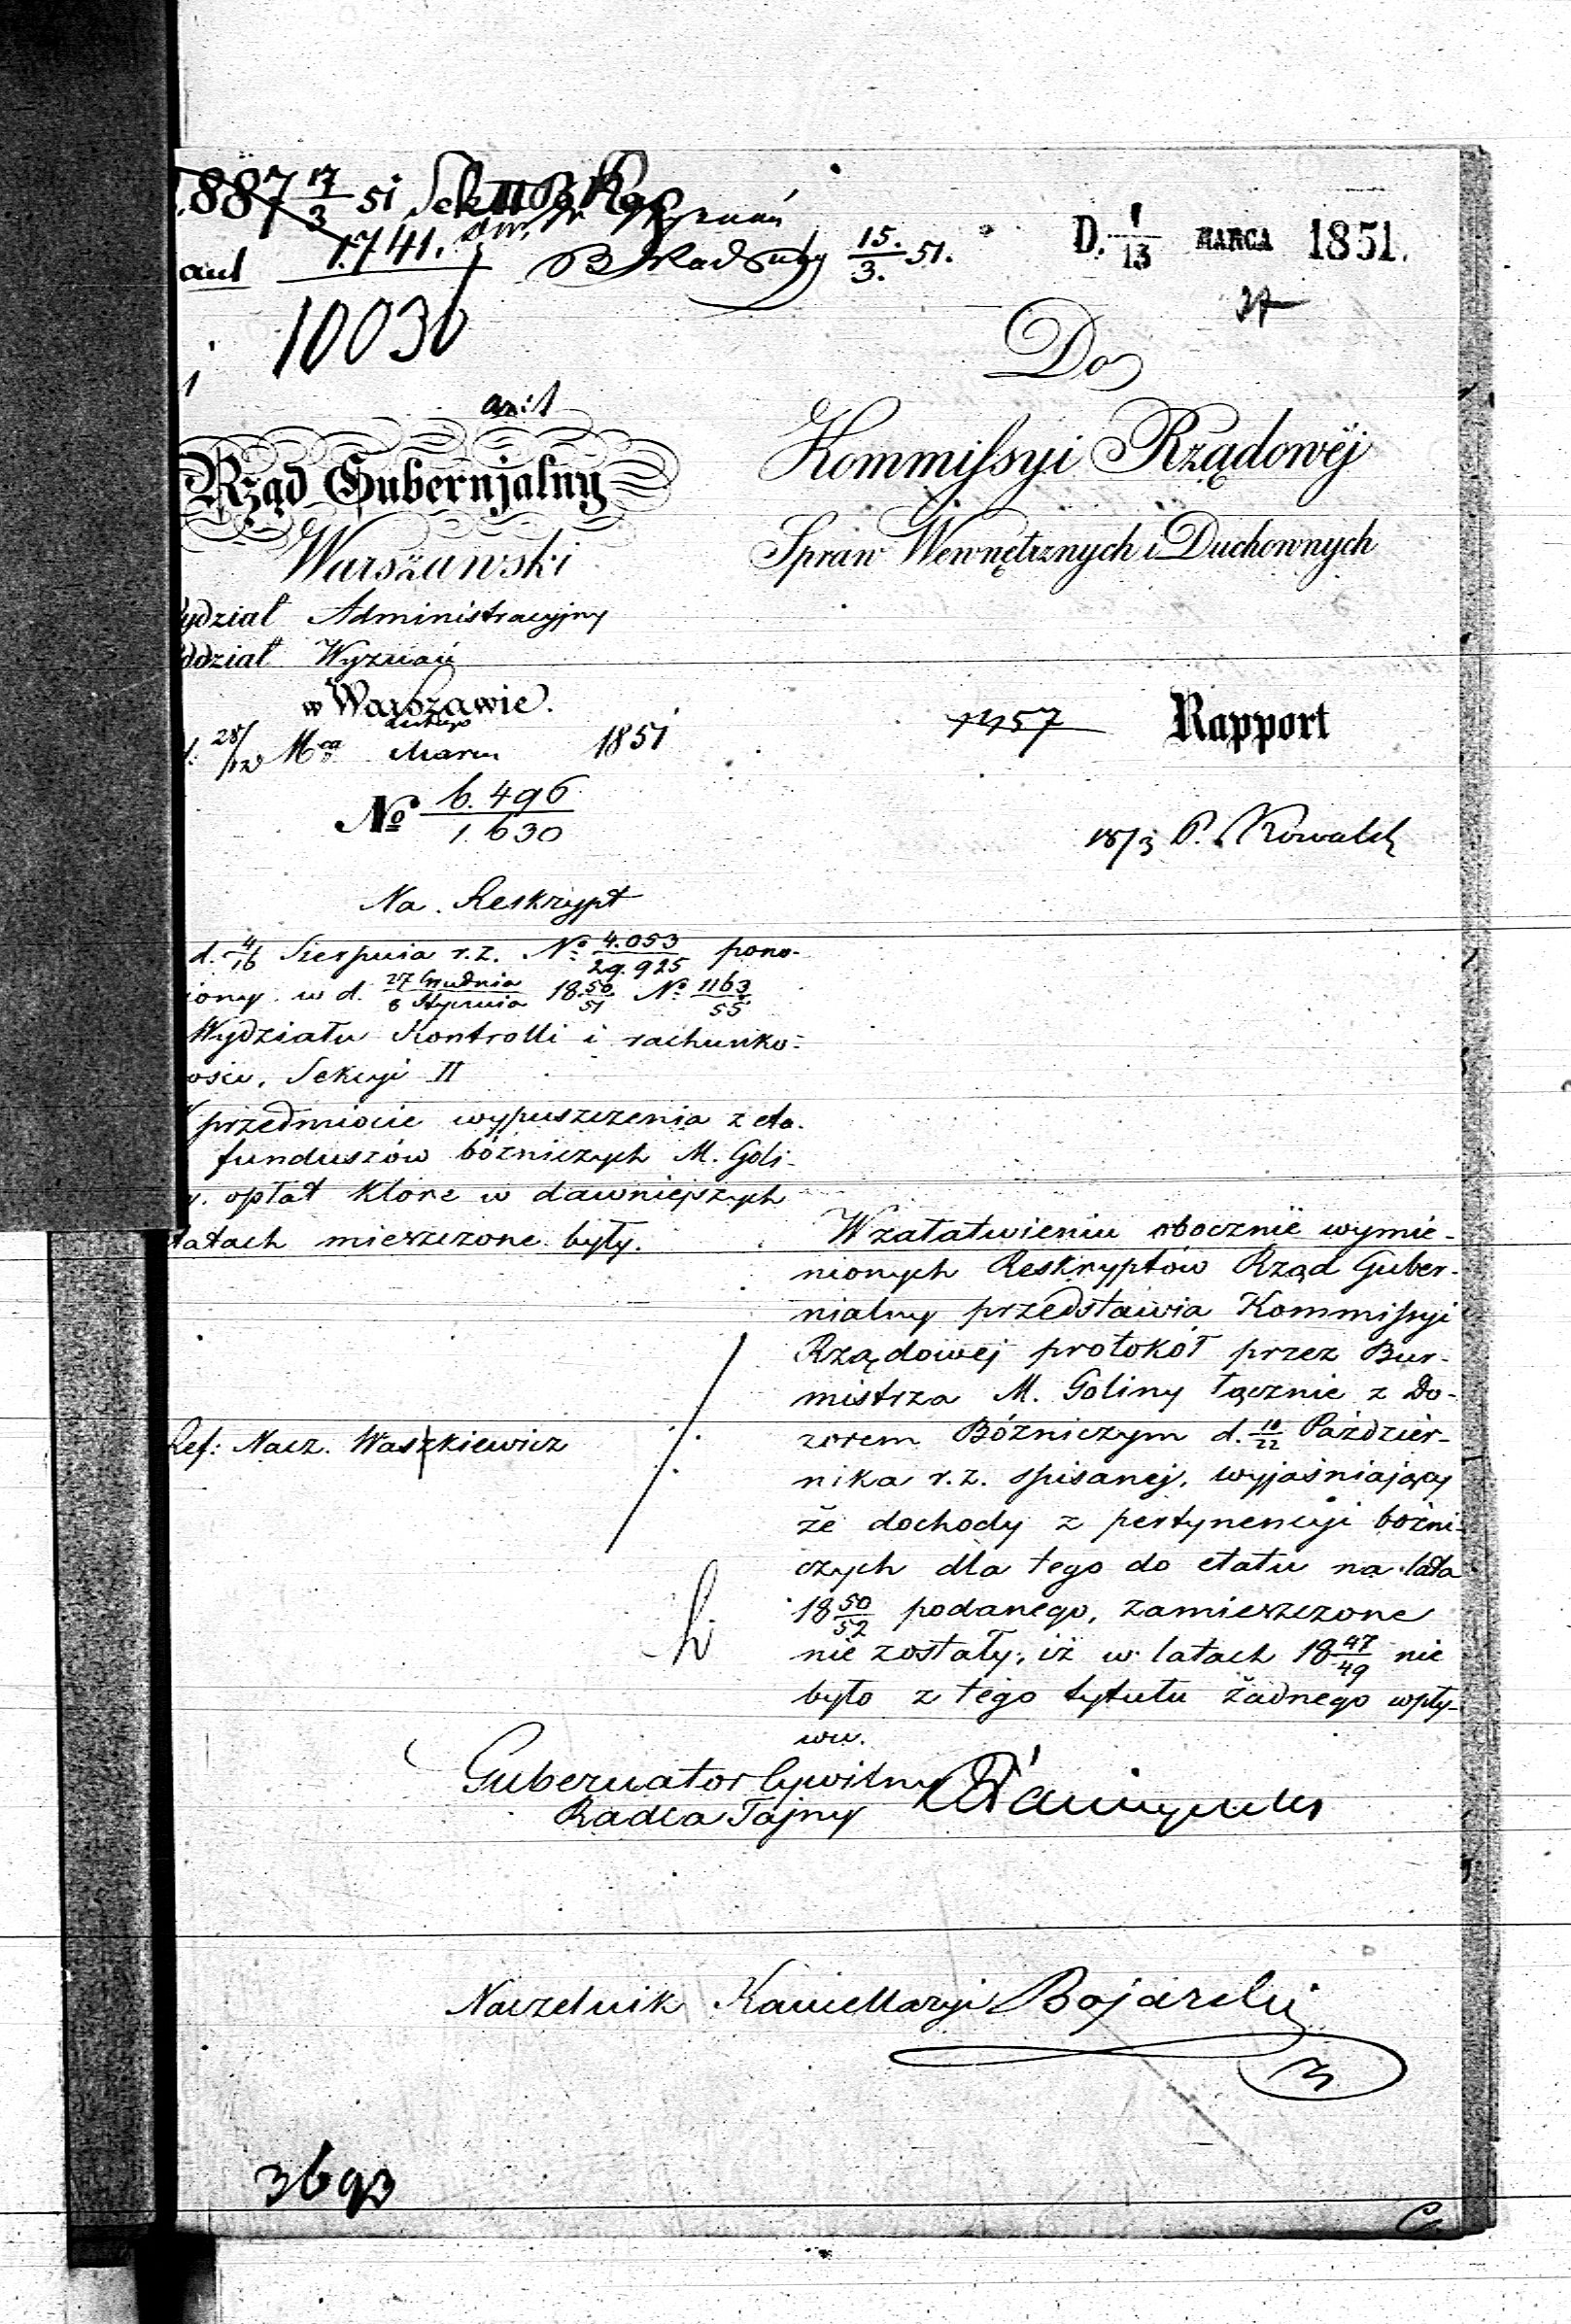 887 17/3 51 Sek II
1741.
10036
15./3. 51.
D. 1/13 MARCA 1851.
37
Do
Kommissyi Rządowéj
Spraw Wewnętrznych i Duchownych
Rząd Gubernjalny
Warszawski
ydział Administracyjny
ddział Wyznań
w Warszawie.
28/12 Mca Lutego Marca 1851
No 6.496/1.630
1457
Rapport
15/3 P. Kowalsk
Na Reskrypt
d. 4/16 Sierpnia r.z. No 4.053/29.925 pono-
iony w d. 27 Grudnia/8 Stycznia 18 50/51 No 1163/55
Wydziału Kontrolli i rachunko-
ości, Sekcyi II
przedmiocie wypuszczenia z eta-
funduszów bóżniczych M. Goli-
y. opłat które w dawniejszych
tatach mieszczone były.
Ref: Nacz. Waszkiewicz
W załatwieniu obocznie wymie-
nionych Reskryptów Rząd Guber-
nialny przedstawia Kommissyi
Rządowej protokół przez Bur-
mistrza M. Goliny łącznie z Do-
zorem Bóżniczym d. 10/22 Paździer-
nika r.z. spisanej, wyjaśniający
że dochody z pertynencyi bóżni-
czych dla tego do etatu na lata
18 50/52 podanego, zamieszczone
nie zostały, iż w latach 18 47/49 nie
było z tego tytułu żadnego wpły-
wu.
Gubernator Cywilny
Radca Tajny
Naczelnik Kancellaryi Bojarski
3693